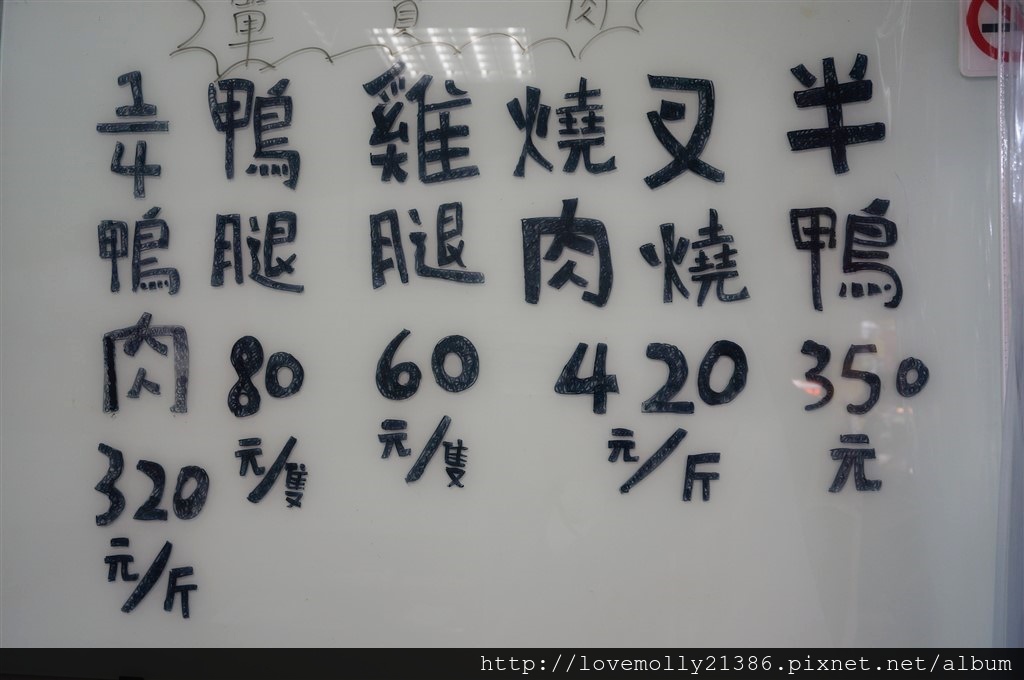 單 肉
半鴨 350元
叉燒
燒肉
420元/斤
雞腿 60元/隻
鴨腿 80元/隻
1/4鴨肉 320元/斤
http://lovemolly21386.pixnet.net/album